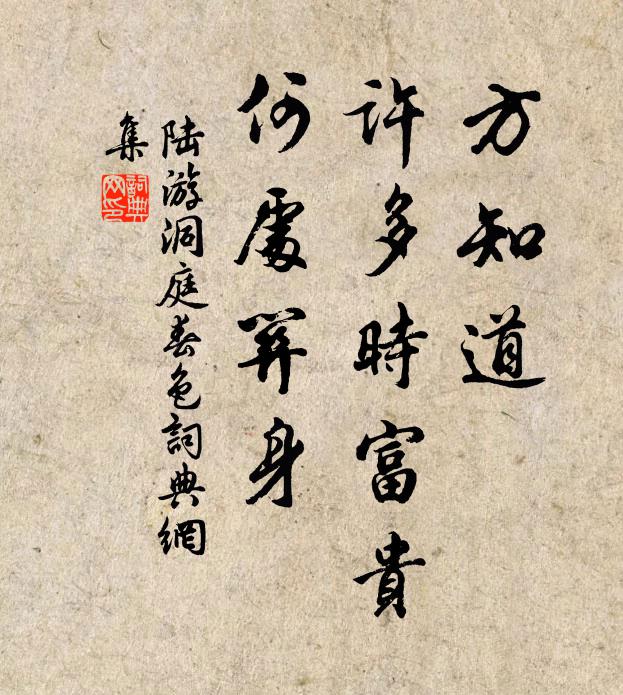 方知道
許多時富貴
何處關身
陸游洞庭春色詞典網
集
詞典
网印